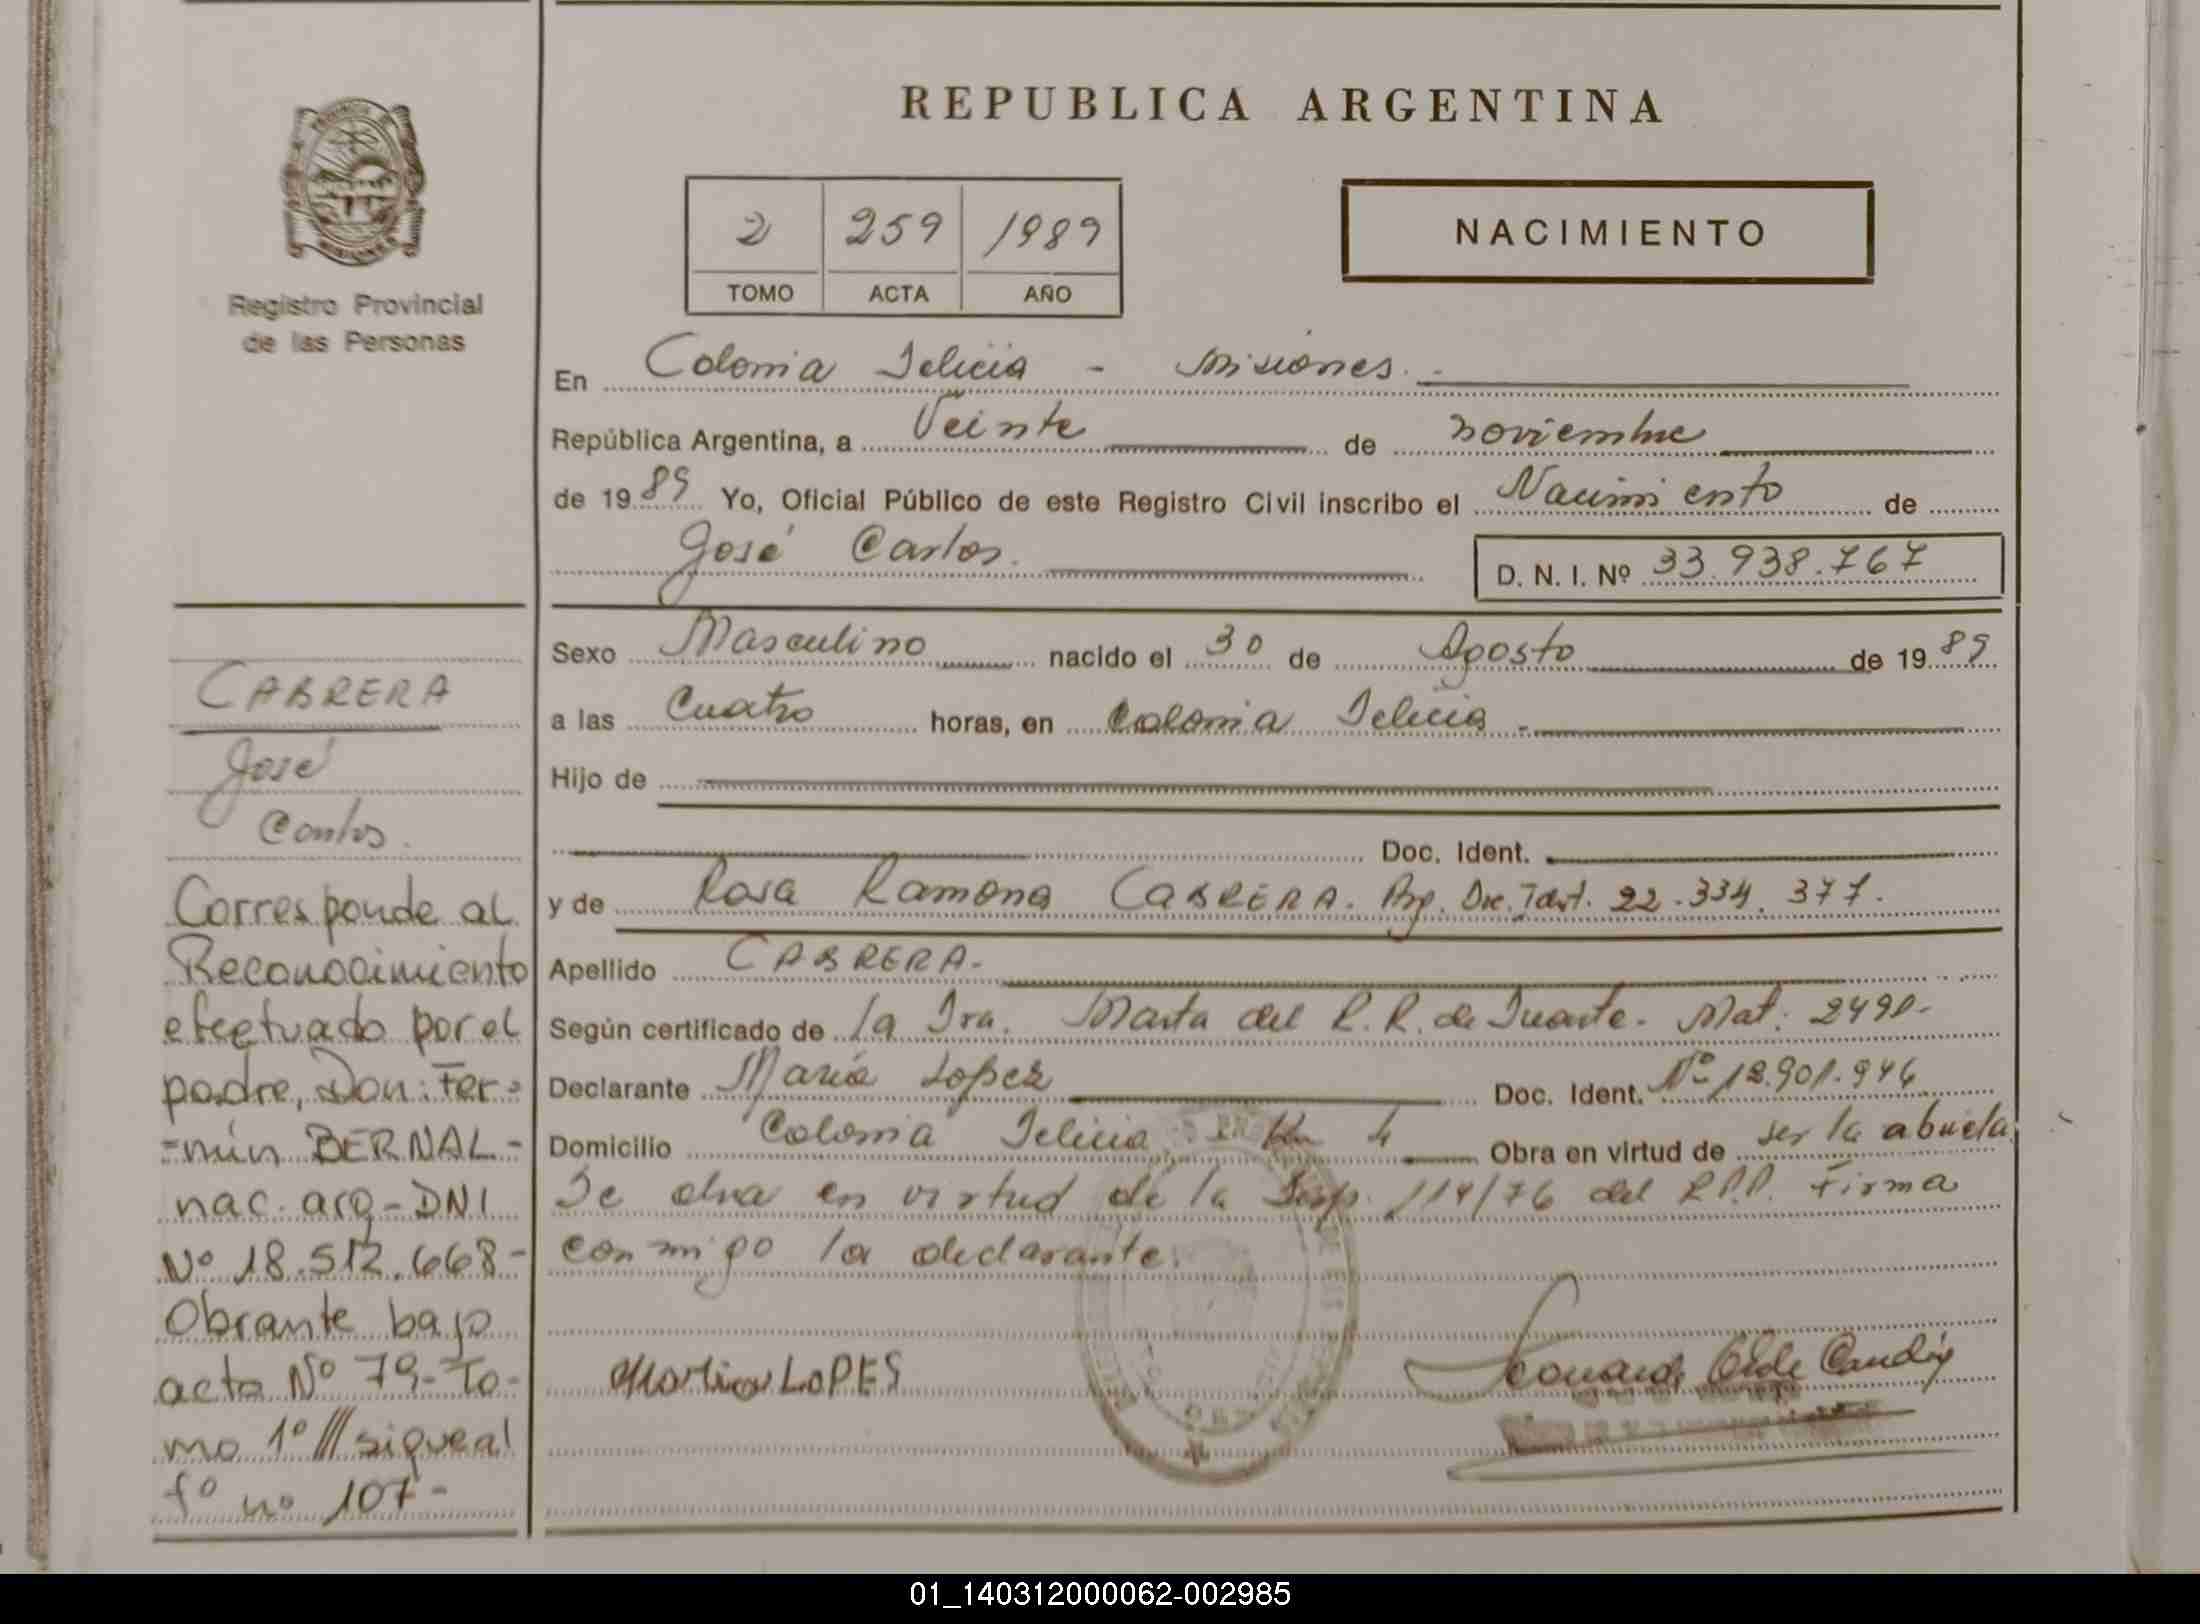 REPUBLICA ARGENTINA
Registro Provincial
de las Personas
2 259 1989
TOMO ACTA AÑO
NACIMIENTO
En Colonia Delicia - Misiones.-
República Argentina, a Veinte de noviembre
de 1989 Yo, Oficial Público de este Registro Civil inscribo el Nacimiento de
José Carlos. D. N. I. Nº 33.938.767
Sexo Masculino nacido el 30 de Agosto de 1989
a las cuatro horas, en Colonia Delicia -
Hijo de
Doc. Ident.
y de Rosa Ramona CABRERA. Arg. Doc. Ident. 22.334.377.
Apellido CABRERA.-
Según certificado de la Dra. Marta del R. R. de Duarte. Mat. 2490-
Declarante María Lopez Doc. Ident. Nº 12.901.946
Domicilio Colonia Delicia, Km 4 Obra en virtud de ser la abuela
Se obra en virtud de la Disp. 114/76 del R.P.P. Firma
conmigo la declarante.
LOPES
CABRERA
José
Carlos.
Corresponde al
Reconocimiento
efectuado por el
padre, Don: Fer=
=mín BERNAL-
nac. arg-DNI
Nº 18.512.668-
Obrante bajo
acta Nº 79-To-
mo 1º/// sigue al
fº nº 107-
01_140312000062-002985